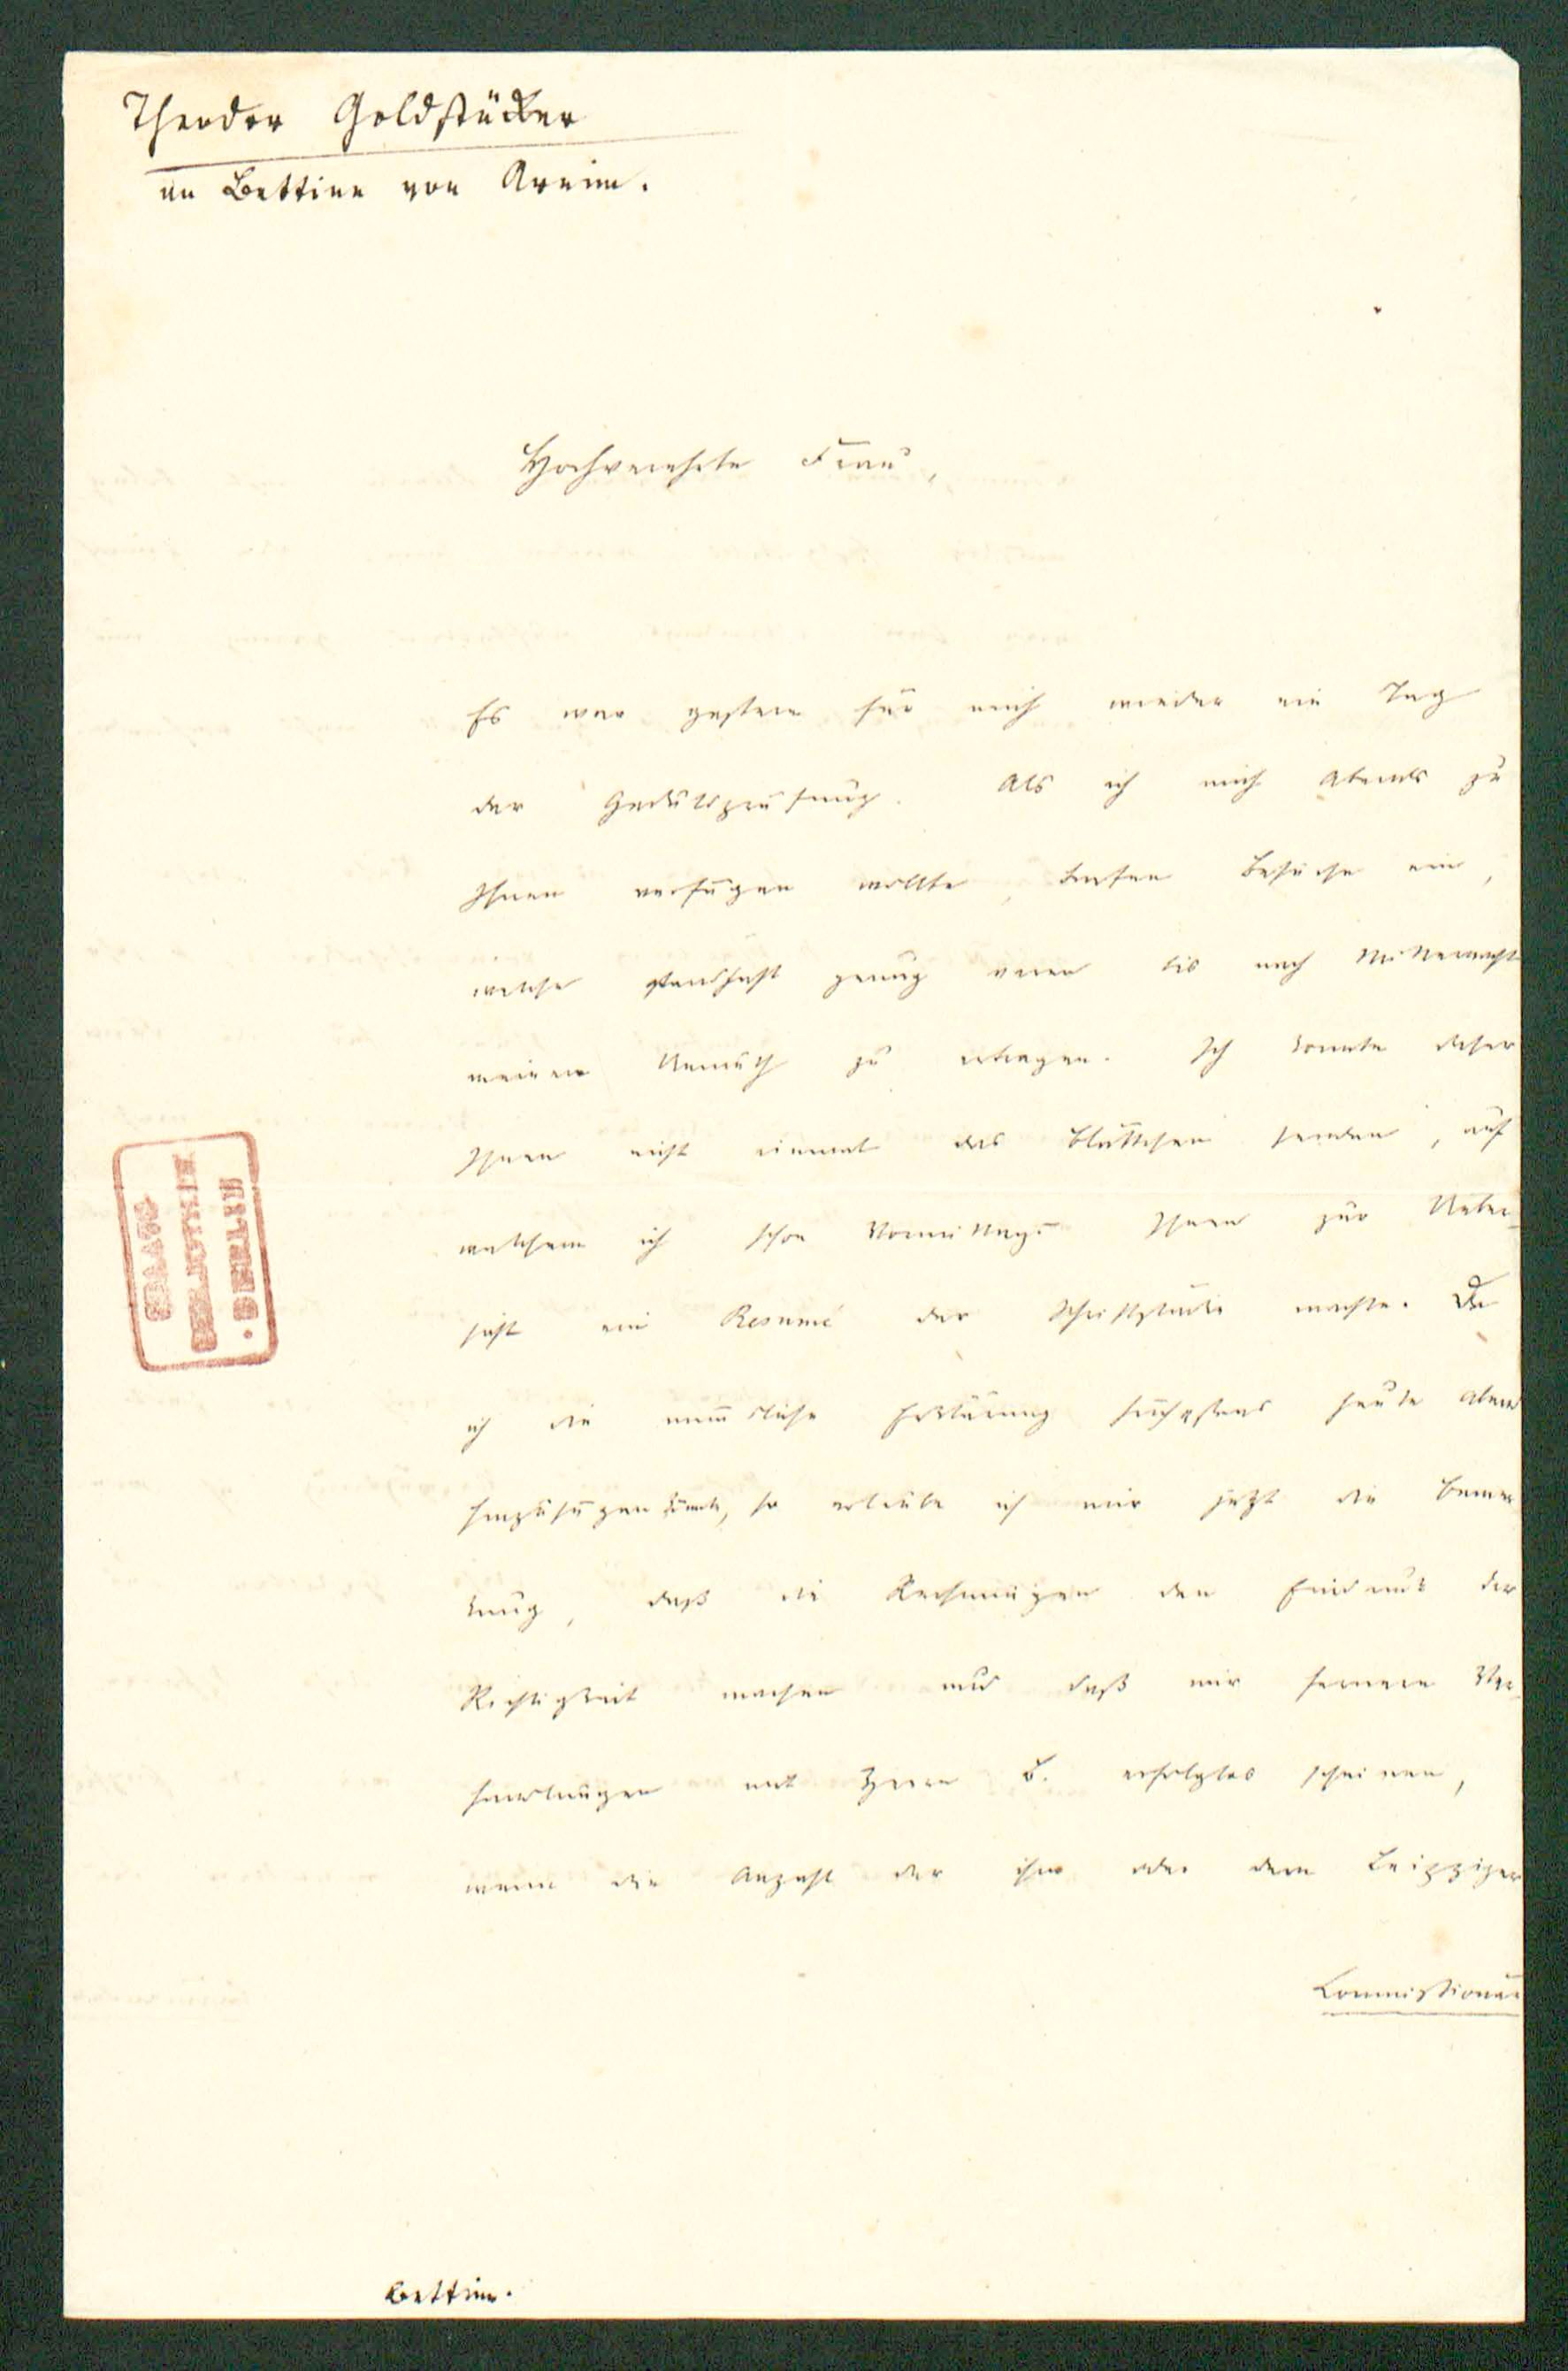 Theodor Goldstücker
an Bettine von Arnim.
Hochverehrte Frau,
Es war gestern für mich wieder ein Tag
der Geduldsprüfung. Als ich mich Abends zu
Ihnen verfügen wollte, trafen Besuche ein,
welche standhaft genug waren bis nach Mitternacht
meinen Unmuth zu ertragen. Ich konnte daher
Ihnen nicht einmal das Blättchen senden, auf
welchem ich schon Vormittags Ihnen zur Ueber-
sicht ein Resumé der Schriftstücke machte. Da
ich die mündliche Erklärung frühestens heute Abend
hinzufügen könnte, so erlaube ich mir jetzt die Bemer-
kung, daß die Rechnungen den Eindruck der
Richtigkeit machen und daß mir fernere Ver-
handlungen mit Herrn B. erfolglos scheinen,
wenn die Anzahl der ihm oder dem Leipziger
Commissionär
Bettine.